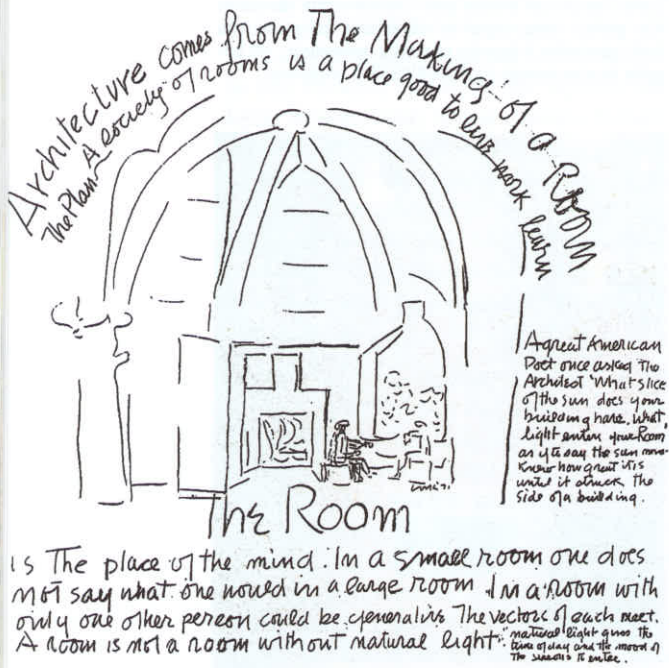 Architecture comes from The Making of a Room
The Plan A society of rooms is a place good to live work learn
A great American
Poet once asked the
Architect 'What slice
of the sun does your
building have. What
light enters your Room
as if to say the sun never
knew how great it is
until it struck the
side of a building.
The Room
is The place of the mind. In a small room one does
not say what one would in a large room. In a room with
only one other person could be generative The vectors of each meet.
A room is not a room without natural light.
natural light gives the
time of day and the mood of
the seasons to enter.